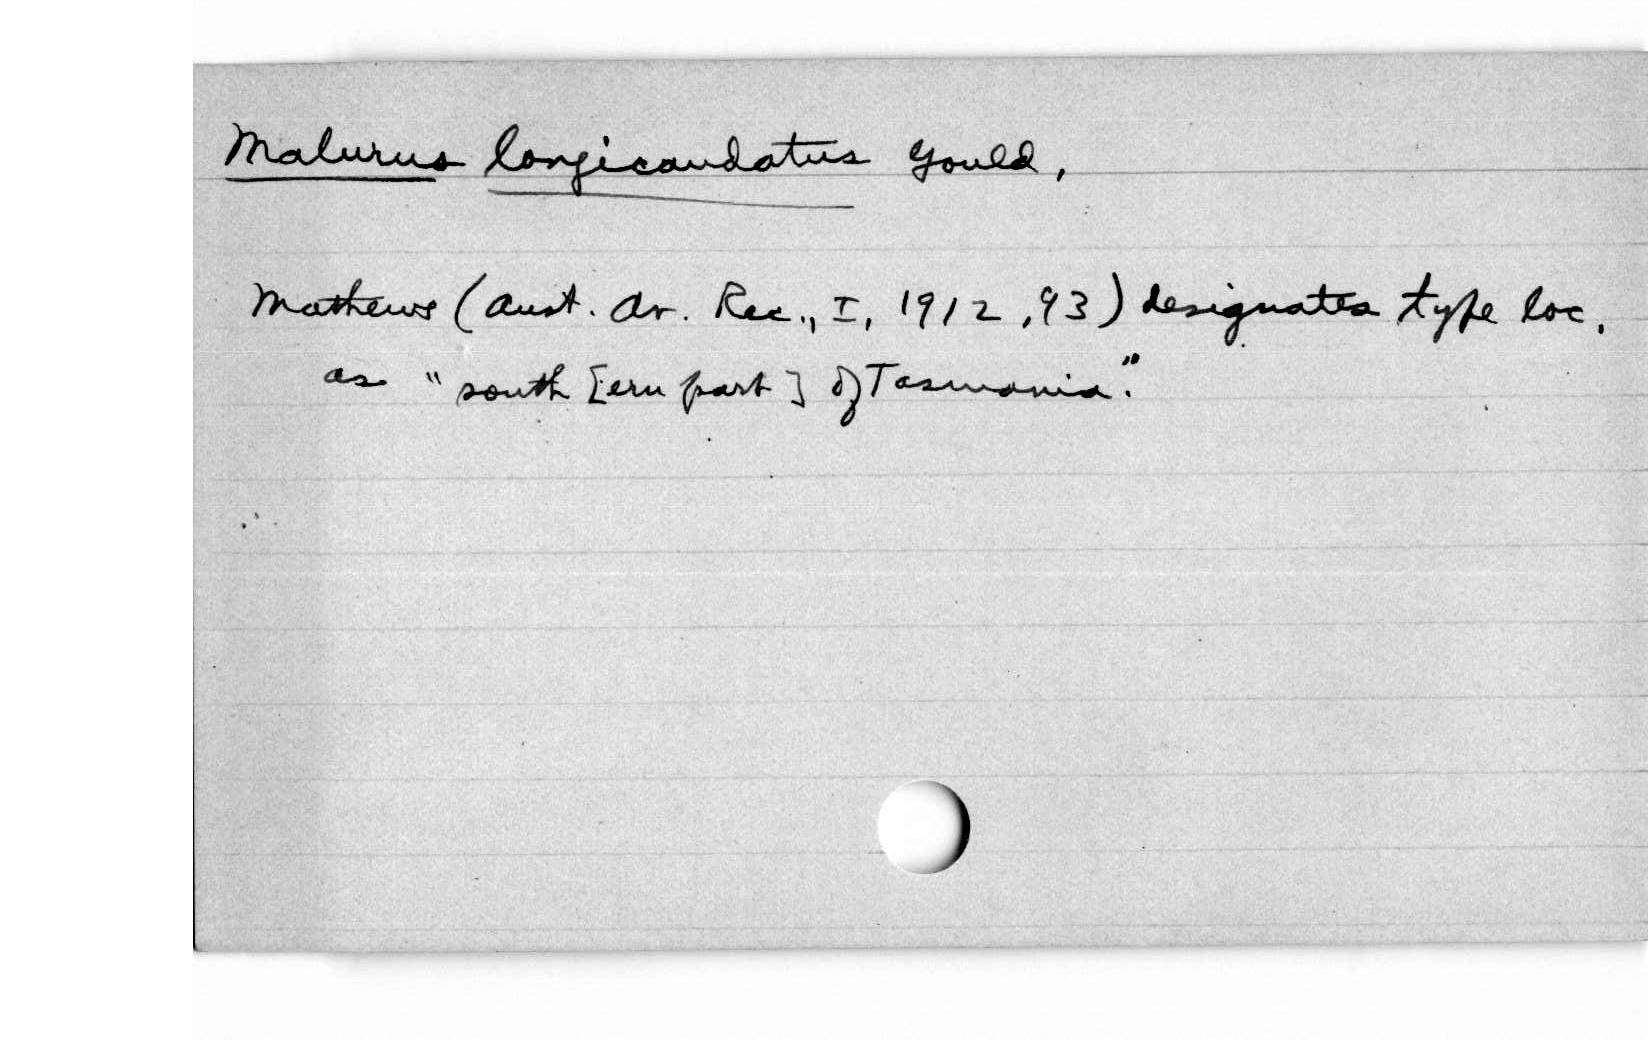 Malurus longicaudatus Gould,
Mathews (Aust. Av. Rec., I, 1912, 93) designates type loc.
as "south [ern part] of Tasmania."